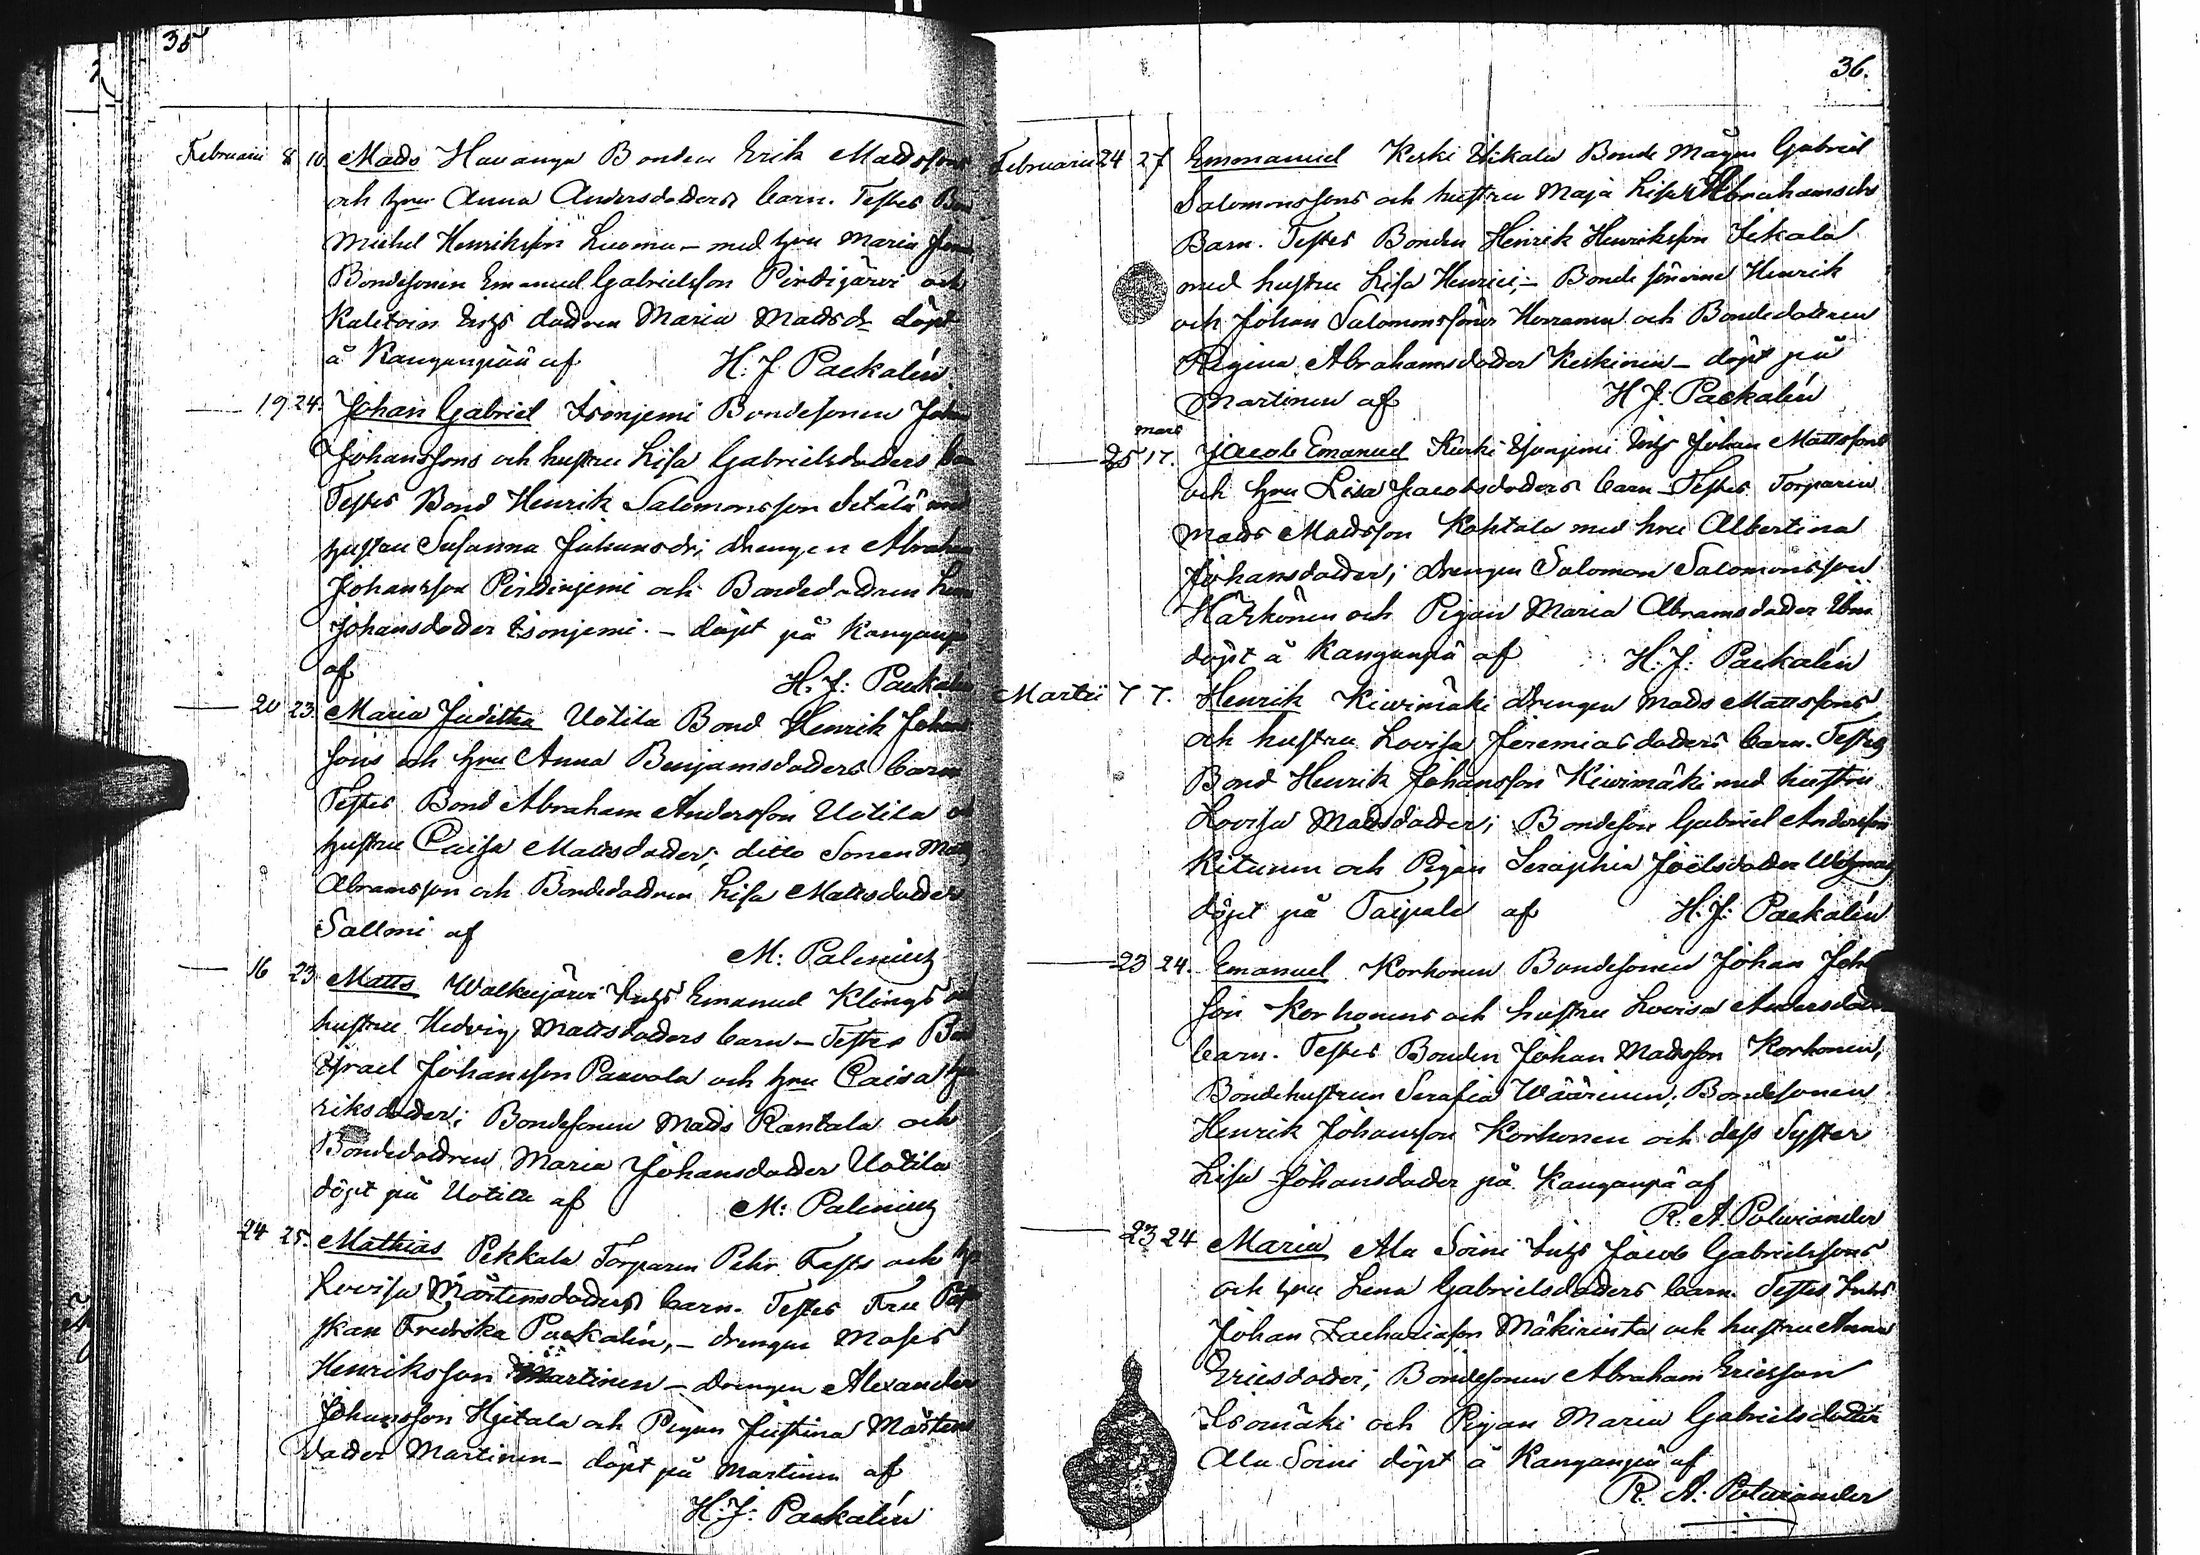 35
Februarii 8 10. Mads Havanga Bonden Erik Madssons
och hru Anna Andersdotters barn. Testes
Michel Henriksson Luoma – med hru Maria
Bondesonen Emanuel Gabrielsson Pirdijärvi och
dottren Maria Madsdr döpt
å Kanganpää af H. J. Packalén.
— 19 24. Johan Gabriel Isonjemi Bondesonen Johan
Johanssons och hustru Lisa Gabrielsdotters
Testes Bond Henrik Salomonsson Setälä med
hustru Susanna Johansdr; drengen Abraham
Johansson Pirdinjemi och Bondedottren
Johansdotter Isonjemi. – döpt på
af H. J: Packalén
— 20 23. Maria Juditha Uotila Bond Henrik Johans
sons och hru Anna Benjamsdotters barn
Testes Bond Abraham Andersson Uotila
hustru Caisa Mattsdotter; ditto Sonen
Abramsson och Bondedottren Lisa Mattsdotter
Salloni af M: Palenius
— 16 23 Matts Walkujärvi Emanuel Klings
hustru Hedvig Mattsdotters barn – Testes
Israel Johansson Paavola och hru Caisa
riksdotter; Bondesonen Mads Rantala och
Bondedottren Maria Johansdotter Uotila
döpt på Uotila af M: Palenius
24 25. Mathias Pekkala Torparen Pehr Fasts och
Lovisa Mårtensdotters barn. Testes Fru
skan Fredrika Packalén, – drengen Moses
Henriksson Martinen – drengen Alexander
Johansson Hjitala och Pigan Justina Mårtens
dotter Martinen – döpt på Martinen af
H: J: Packalén
36.
Februarii 24 27 Emmanuel Keski Ikala Bonde Mågen Gabriel
Salomonssons och hustru Maja Lisa Abrahamsdrs
Barn. Testes Bonden Henrik Henriksson Ikala
med hustru Lisa Henrici; – Bonde sönerne Henrik
och Johan Salomonssöner Horranen och Bondedottren
Regina Abrahamsdotter Keskinen – döpt på
Martinen af H J: Packalén
mars
— 25 17. Jacob Emanuel Isonjemi Johan Mattssons
och hru Lisa Jacobsdotters barn – Testes Torparen
Mads Madsson Kohtala med hru Albertina
Johansdotter; drengen Salomon Salomonsson
Härkönen och Pigan Maria Abramsdotter
döpt å Kanganpä af H: J: Packalén
Martii 7 7. Henrik Kiwimäki drengen Mads Mattssons
och hustru Lovisa Jeremiasdotters barn. Testes
Bond Henrik Johansson Kiwimäki med hustru
Lovisa Madsdotter; Bondeson Gabriel Andersson
Kitunen och Pigan Seraphia Joëlsdotter
döpt på Taipale af H: J: Packalén
— 23 24. Emanuel Korhonen Bondesonen Johan
son Korhonens och hustru Lovisa Andersdotters
barn. Testes Bonden Johan Madsson Korhonen,
Bondehustrun Serafia Wäärinen; Bondesonen
Henrik Johansson Korhonen och dess Syster
Lisa Johansdotter på Kanganpä af
R. A. Polviander
— 23 24 Maria Ala Soini Jacob Gabrielssons
och hru Lena Gabrielsdotters barn Testes
Johan Zachariason Mäkirinta och hustru Anna
Ericsdotter; Bondesonen Abraham Ericsson
Isomäki och Pigan Maria Gabrielsdotter
Ala Soini döpt å Kanganpä af
R. A: Polviander